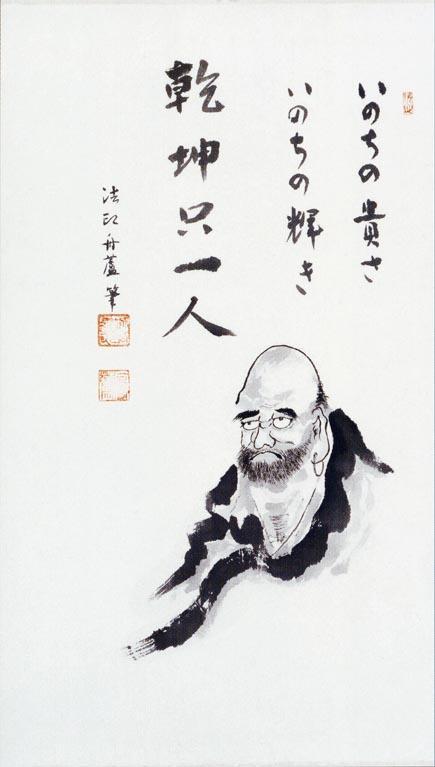 いのちの貴さ
いのちの輝き
乾坤只一人
法印舟蘆筆